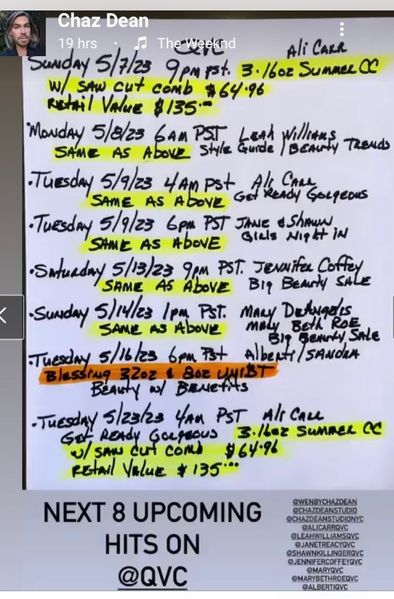 Chaz Dean
19 hrs · The Weeknd
QVC
Ali Carr
Sunday 5/7/23 9pm pst. 3.16oz Summer CC
w/ Saw cut comb $64.96
Retail Value $135.00
•Monday 5/8/23 6am PST Leah Williams
Same as above Style Guide / Beauty Trends
•Tuesday 5/9/23 4am Pst Ali Carr
Same as above Get Ready Gorgeous
•Tuesday 5/9/23 6pm PST Jane & Shawn
Same as above Girls Night In
•Saturday 5/13/23 9pm PST. Jennifer Coffey
Same as above Big Beauty Sale
•Sunday 5/14/23 1pm Pst. Mary DeAngelis
Same as above Mary Beth Roe
Big Beauty Sale
Tuesday 5/16/23 6pm Pst Alberti / Sandra
Blessing 32oz & 8oz
Beauty w/ Benefits
•Tuesday 5/23/23 4am PST Ali Carr
Get Ready Gorgeous 3.16oz Summer CC
w/ Saw cut comb $64.96
Retail Value $135.00
NEXT 8 UPCOMING
HITS ON
@QVC
@WENBYCHAZDEAN
@CHAZDEANSTUDIO
@CHAZDEANSTUDIONYC
@ALICARRQVC
@LEAHWILLIAMSQVC
@JANETREACYQVC
@SHAWNKILLINGERQVC
@JENNIFERCOFFEYQVC
@MARYQVC
@MARYBETHROEQVC
@ALBERTIQVC